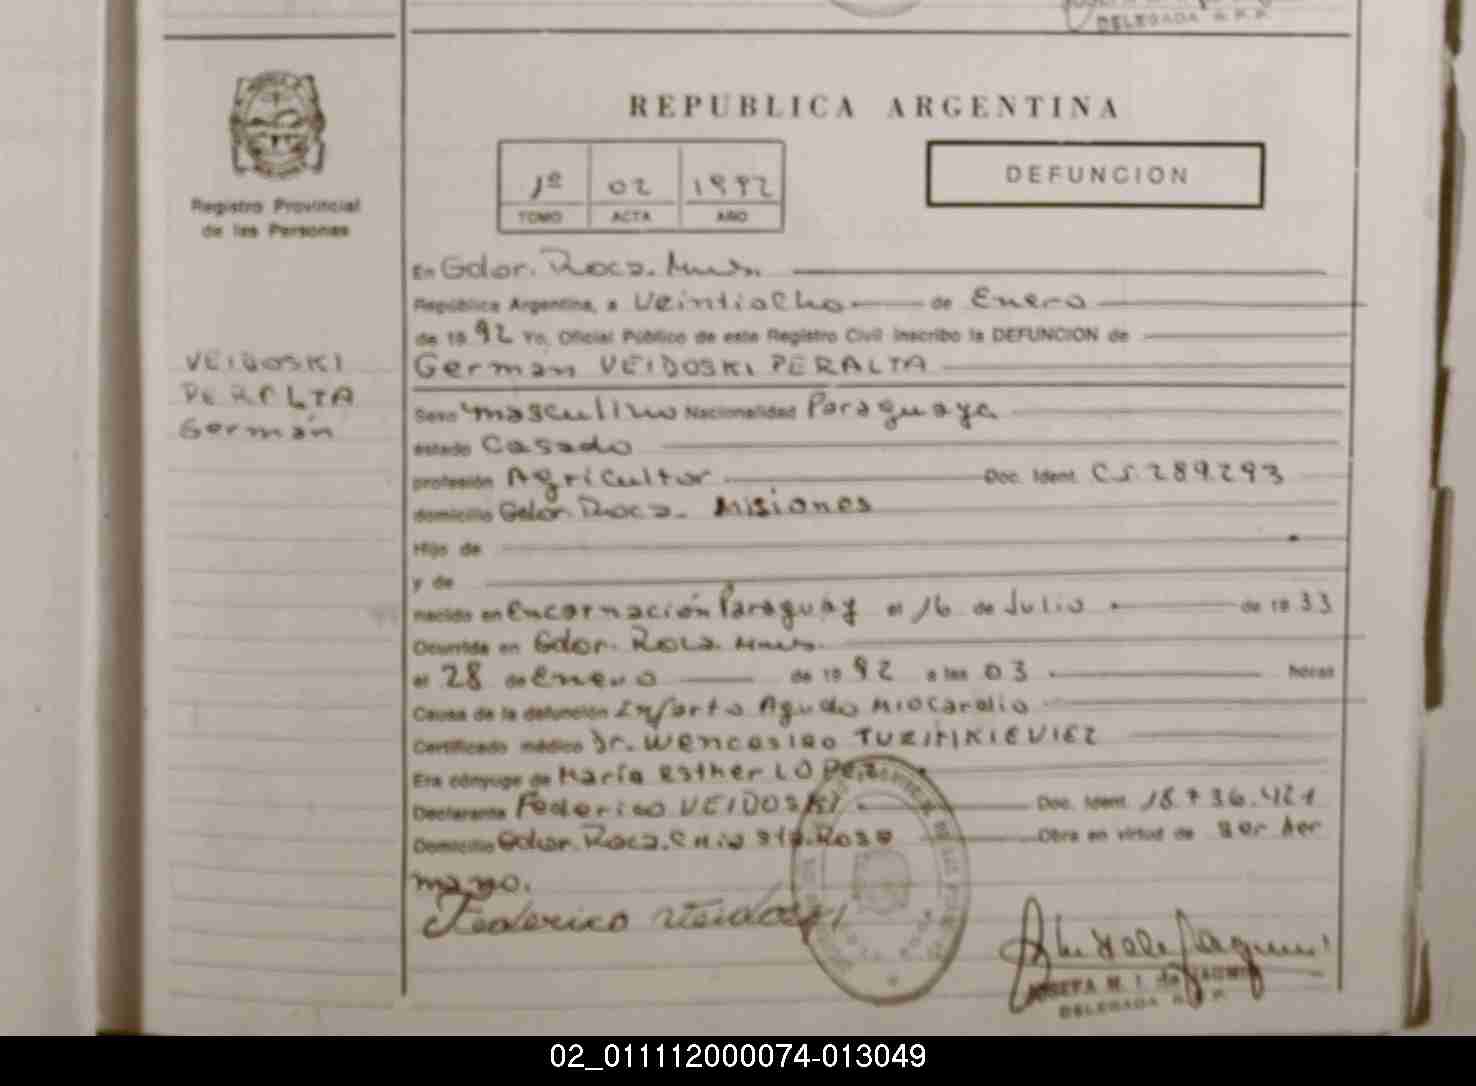 DELEGADA R.P.P.
REPUBLICA ARGENTINA
1º 02 1992
TOMO ACTA AÑO
DEFUNCION
Registro Provincial
de las Personas
VEIDOSKI
PERALTA
Germán
En Gdor. Roca. Mnes.
República Argentina, a Veintiocho de Enero
de 19 92 Yo, Oficial Público de este Registro Civil inscribo la DEFUNCION de
Germán VEIDOSKI PERALTA
Sexo masculino Nacionalidad Paraguaya
estado Casado
profesión Agricultor Doc. Ident. C.I. 289.293
domicilio Gdor. Roca. Misiones
Hijo de
y de
nacido en Encarnación Paraguay el 16 de Julio de 19 33
Ocurrida en Gdor. Roca. Mnes.
el 28 de Enero de 19 92 a las 03 horas
Causa de la defunción Infarto Agudo Miocardio
Certificado médico Dr. Wenceslao
Era cónyuge de María Esther LOPEZ
Declarante Federico VEIDOSKI Doc. Ident. 18.736.421
Domicilio Gdor. Roca. Sta. Rosa Obra en virtud de ser her
mano.
Federico Veidoski
JOSEFA M. I. de
DELEGADA R.P.P.
02_011112000074-013049